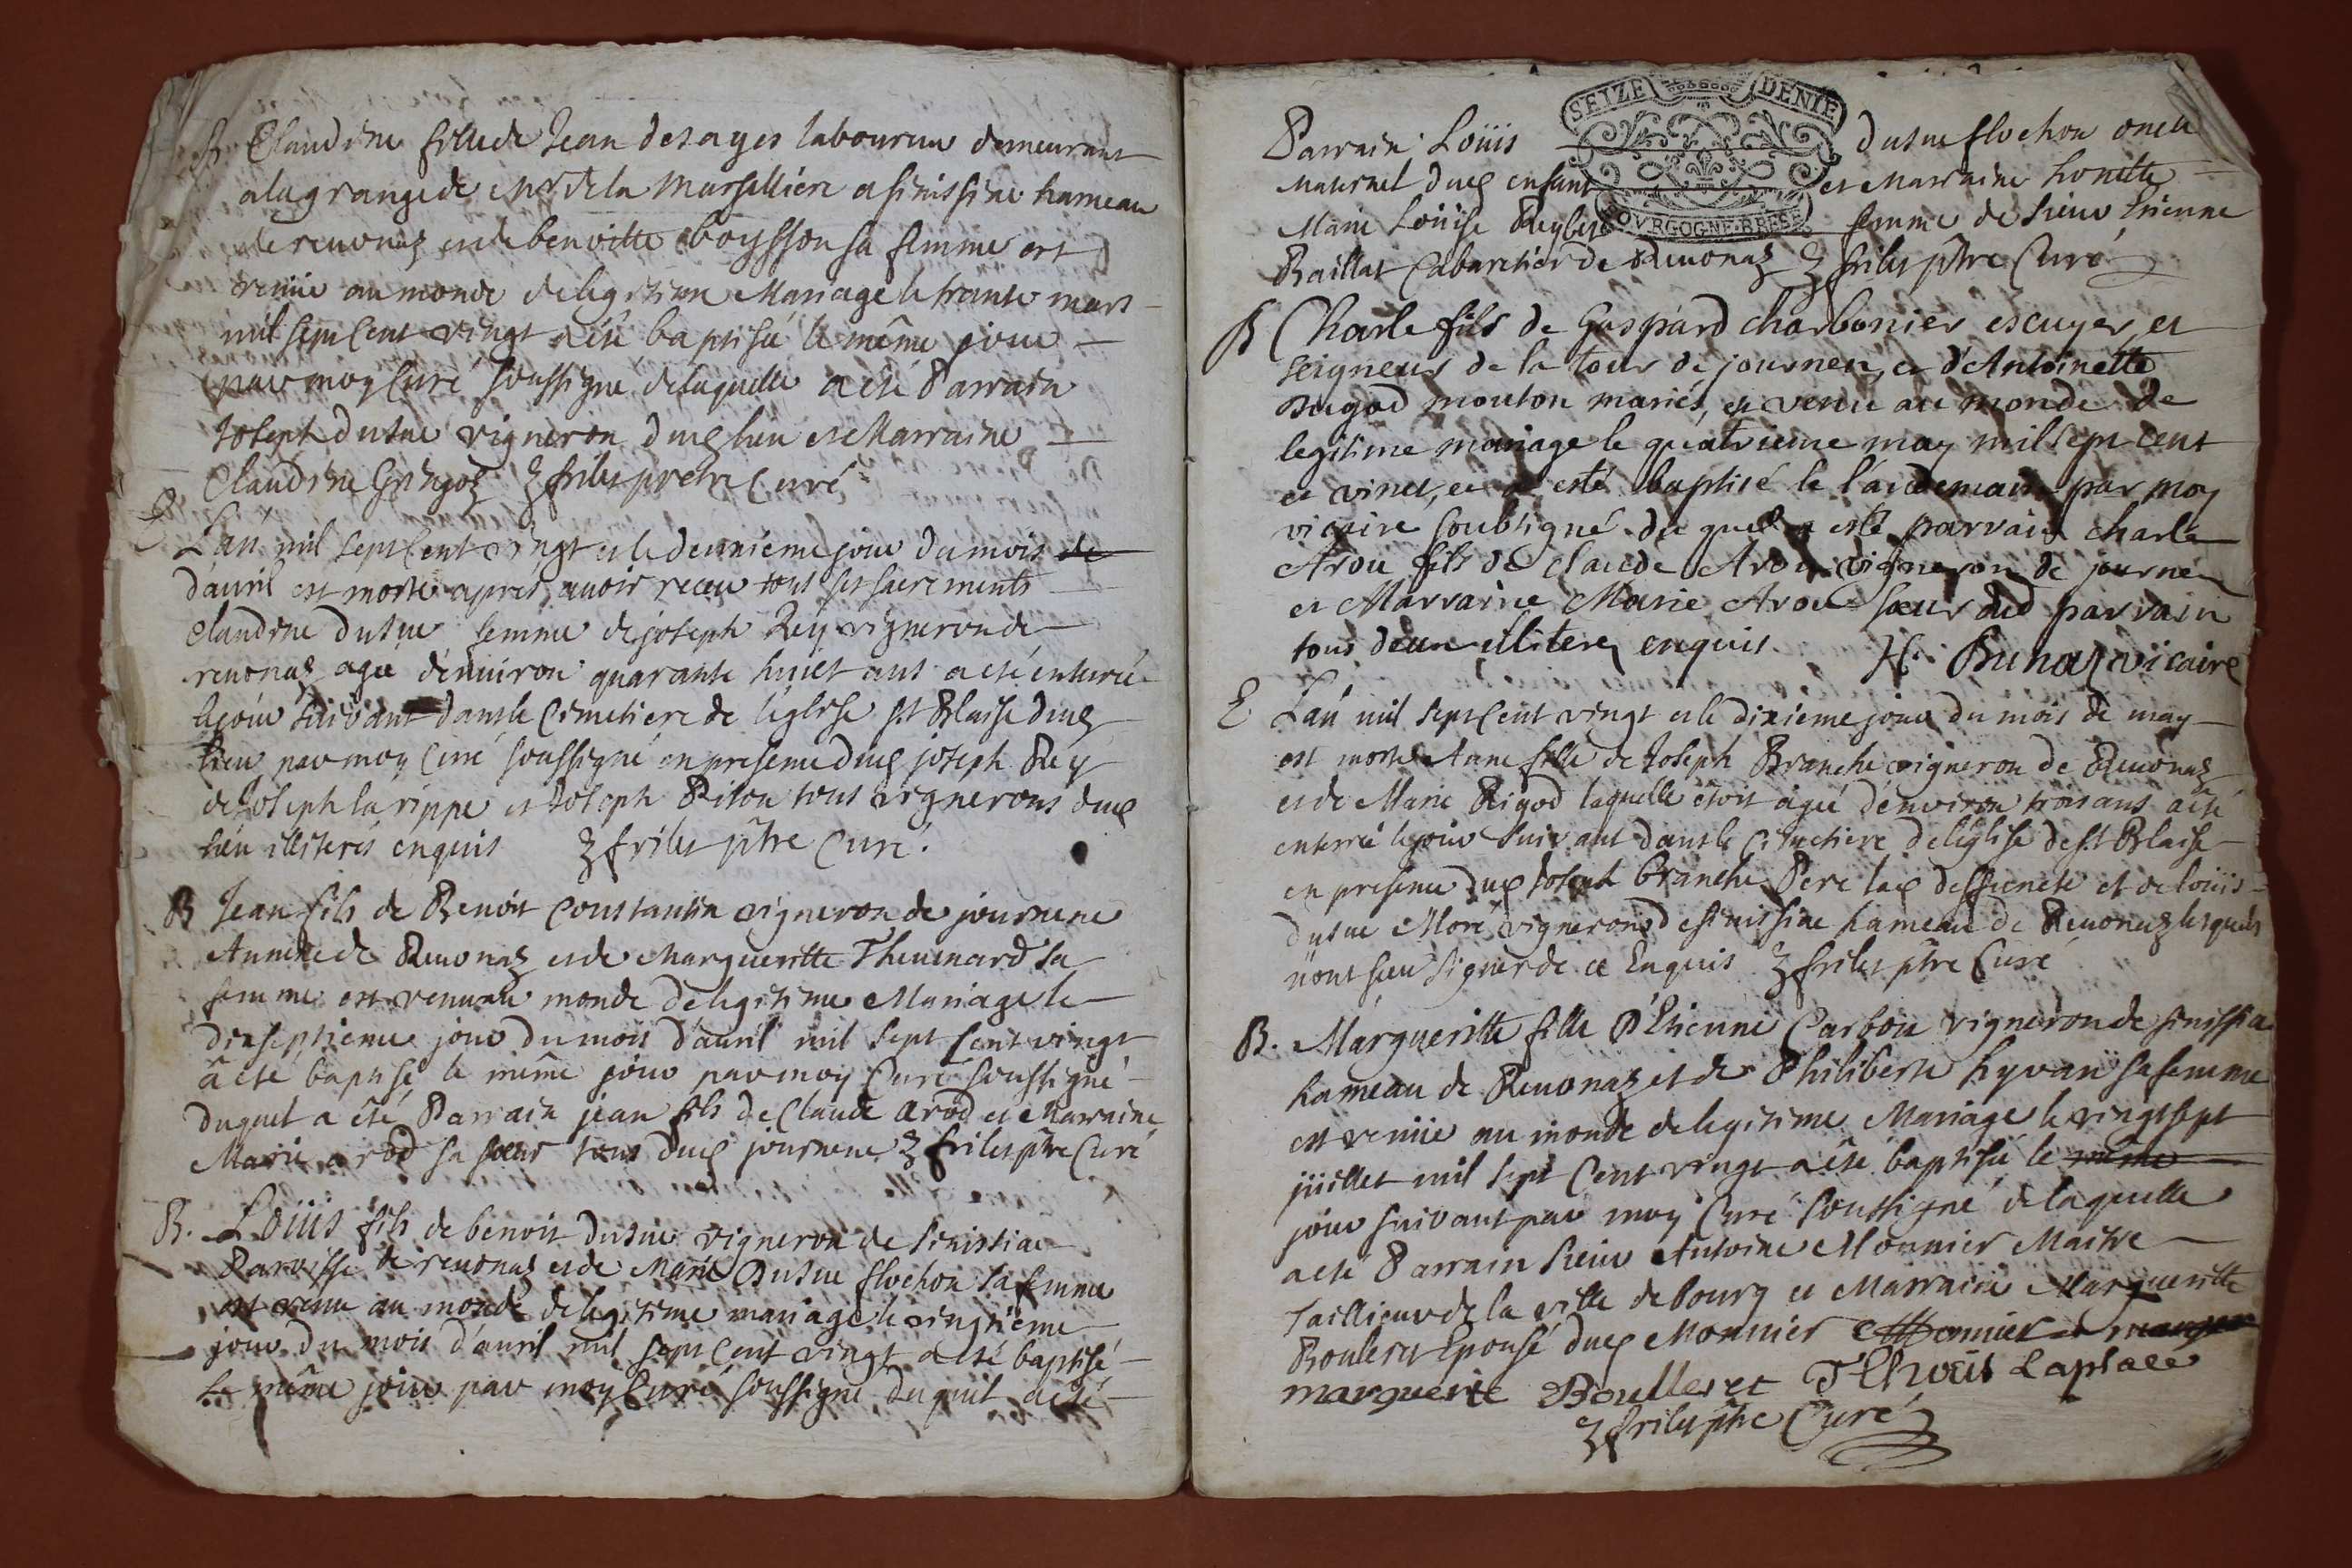 B. Claudine fille de Jean desayes laboureur demeurant
a la grange de Mr de la Marsilliere a sinissiac hameau
de reuonas et de benoitte boysson sa femme est
venüe au monde de legitime Mariage le trante mars
mil sept Cent vingt a été baptisée le même jour
par moy Curé soussigné de laquelle a été Parrain
Joseph dusue vigneron dud lieu et Marraine
Claudine frilet prêtre Curé
E L'an mil sept Cent vingt et le deuxieme jour du mois de
d'auril est morte apres auoir receu tous ses sacrements
Claudine dusue femme de joseph Rey vigneron de
reuonas agée d'enuiron quarante huict ans a été enterrée
le jour suivant dans le Cimetiere de l'église st Blaise dud
lieu par moy Curé soussigné en presence dud joseph Rey
de Joseph la rippe et Joseph Piton tous vignerons dud
lieu illiterés enquis frilet ptre Curé.
B Jean fils de Benoit Constantin vigneron de journene
Annexe de Reuonas et de Margueritte Theuenard sa
femme est venu au monde de legitime Mariage le
dixseptieme jour du mois d'auril mil sept Cent vingt
a été baptisé le même jour par moy Curé soussigné
duquel a été Parrain jean fils de Claude arod et Marraine
Marie arod sa sœur tous dud journene frilet ptre Curé
B. Loüis fils de benoit dusue vigneron de sinissiac
Parroisse de reuonas et de Marie Dusue flochon sa femme
est venu au monde de legitime mariage le vingtieme
jour du mois d'auril mil sept Cent vingt a été baptisé
Le même jour par moy Curé soussigné duquel a été
SEIZE DENIE
Parrain Loüis dusue flochon oncle
Maternel dud enfant et Marraine honette
Marie Loüise femme de sieur Etienne
BOVRGOGNE·BRESSE
Baillat Cabaretier de Reuonas frilet ptre Curé
B Charle fils de Gaspard charbonier escuyer, et
seigneur de la tour de journen, et d'Antoinette
Dugad mouton mariés, est venu au monde de
legitime mariage le quatrieme may mil sept cent
et vinct, et a esté baptisé le landemain par moy
vicaire soubsigné du quel a esté parrain charle
Arou fils de claude Arou vigneron de journen
et Marraine Marie Arou sœur dud parrain
tous deux illiterez enquis. Bunaz vicaire
E L'an mil sept Cent vingt et le dixieme jour du mois de may
est morte Anne fille de Joseph Branche vigneron de Reuonas
et de Marie Rigod laquelle étoit agée d'environ trois ans a été
enterrée le jour suivant dans le cimetiere de l'église de st Blaise
en presence dud Joseph branche Pere lad deffuncte et de loüis
dusue Moré vignerons de sinissiac hameau de Reuonas lesquels
n'ont sceu signer de ce Enquis frilet ptre Curé
B. Margueritte fille d'Etienne Carbon vigneron de sinissia
hameau de Reuonas et de Philiberte hyvan sa femme
est venüe au monde de legitime Mariage le vingtsept
juillet mil sept Cent vingt a été baptisée le même
jour suivant par moy Curé soussigné de laquelle
a été Parrain sieur Antoine Monnier Maitre
Taillieur de la ville de bourg et Marraine Margueritte
Bouleret Epouse dud Monnier
marguerite Boulleret Laplace
frilet ptre Curé